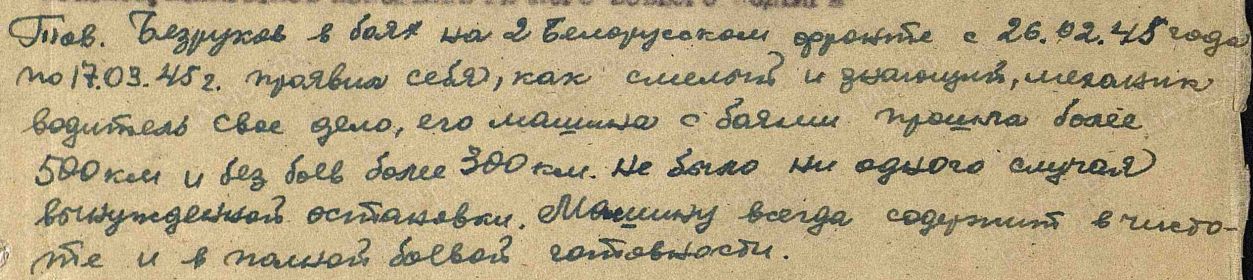 Тов. Безруков в боях на 2 Белорусском фронте с 26.02.45 года
по 17.03.45 г. проявил себя, как смелый и знающий, механик
водитель свое дело, его машина с боями прошла более
500 км и без боев более 300 км. не было ни одного случая
вынужденной остановки. Машину всегда содержит в чисто-
те и в полной боевой готовности.